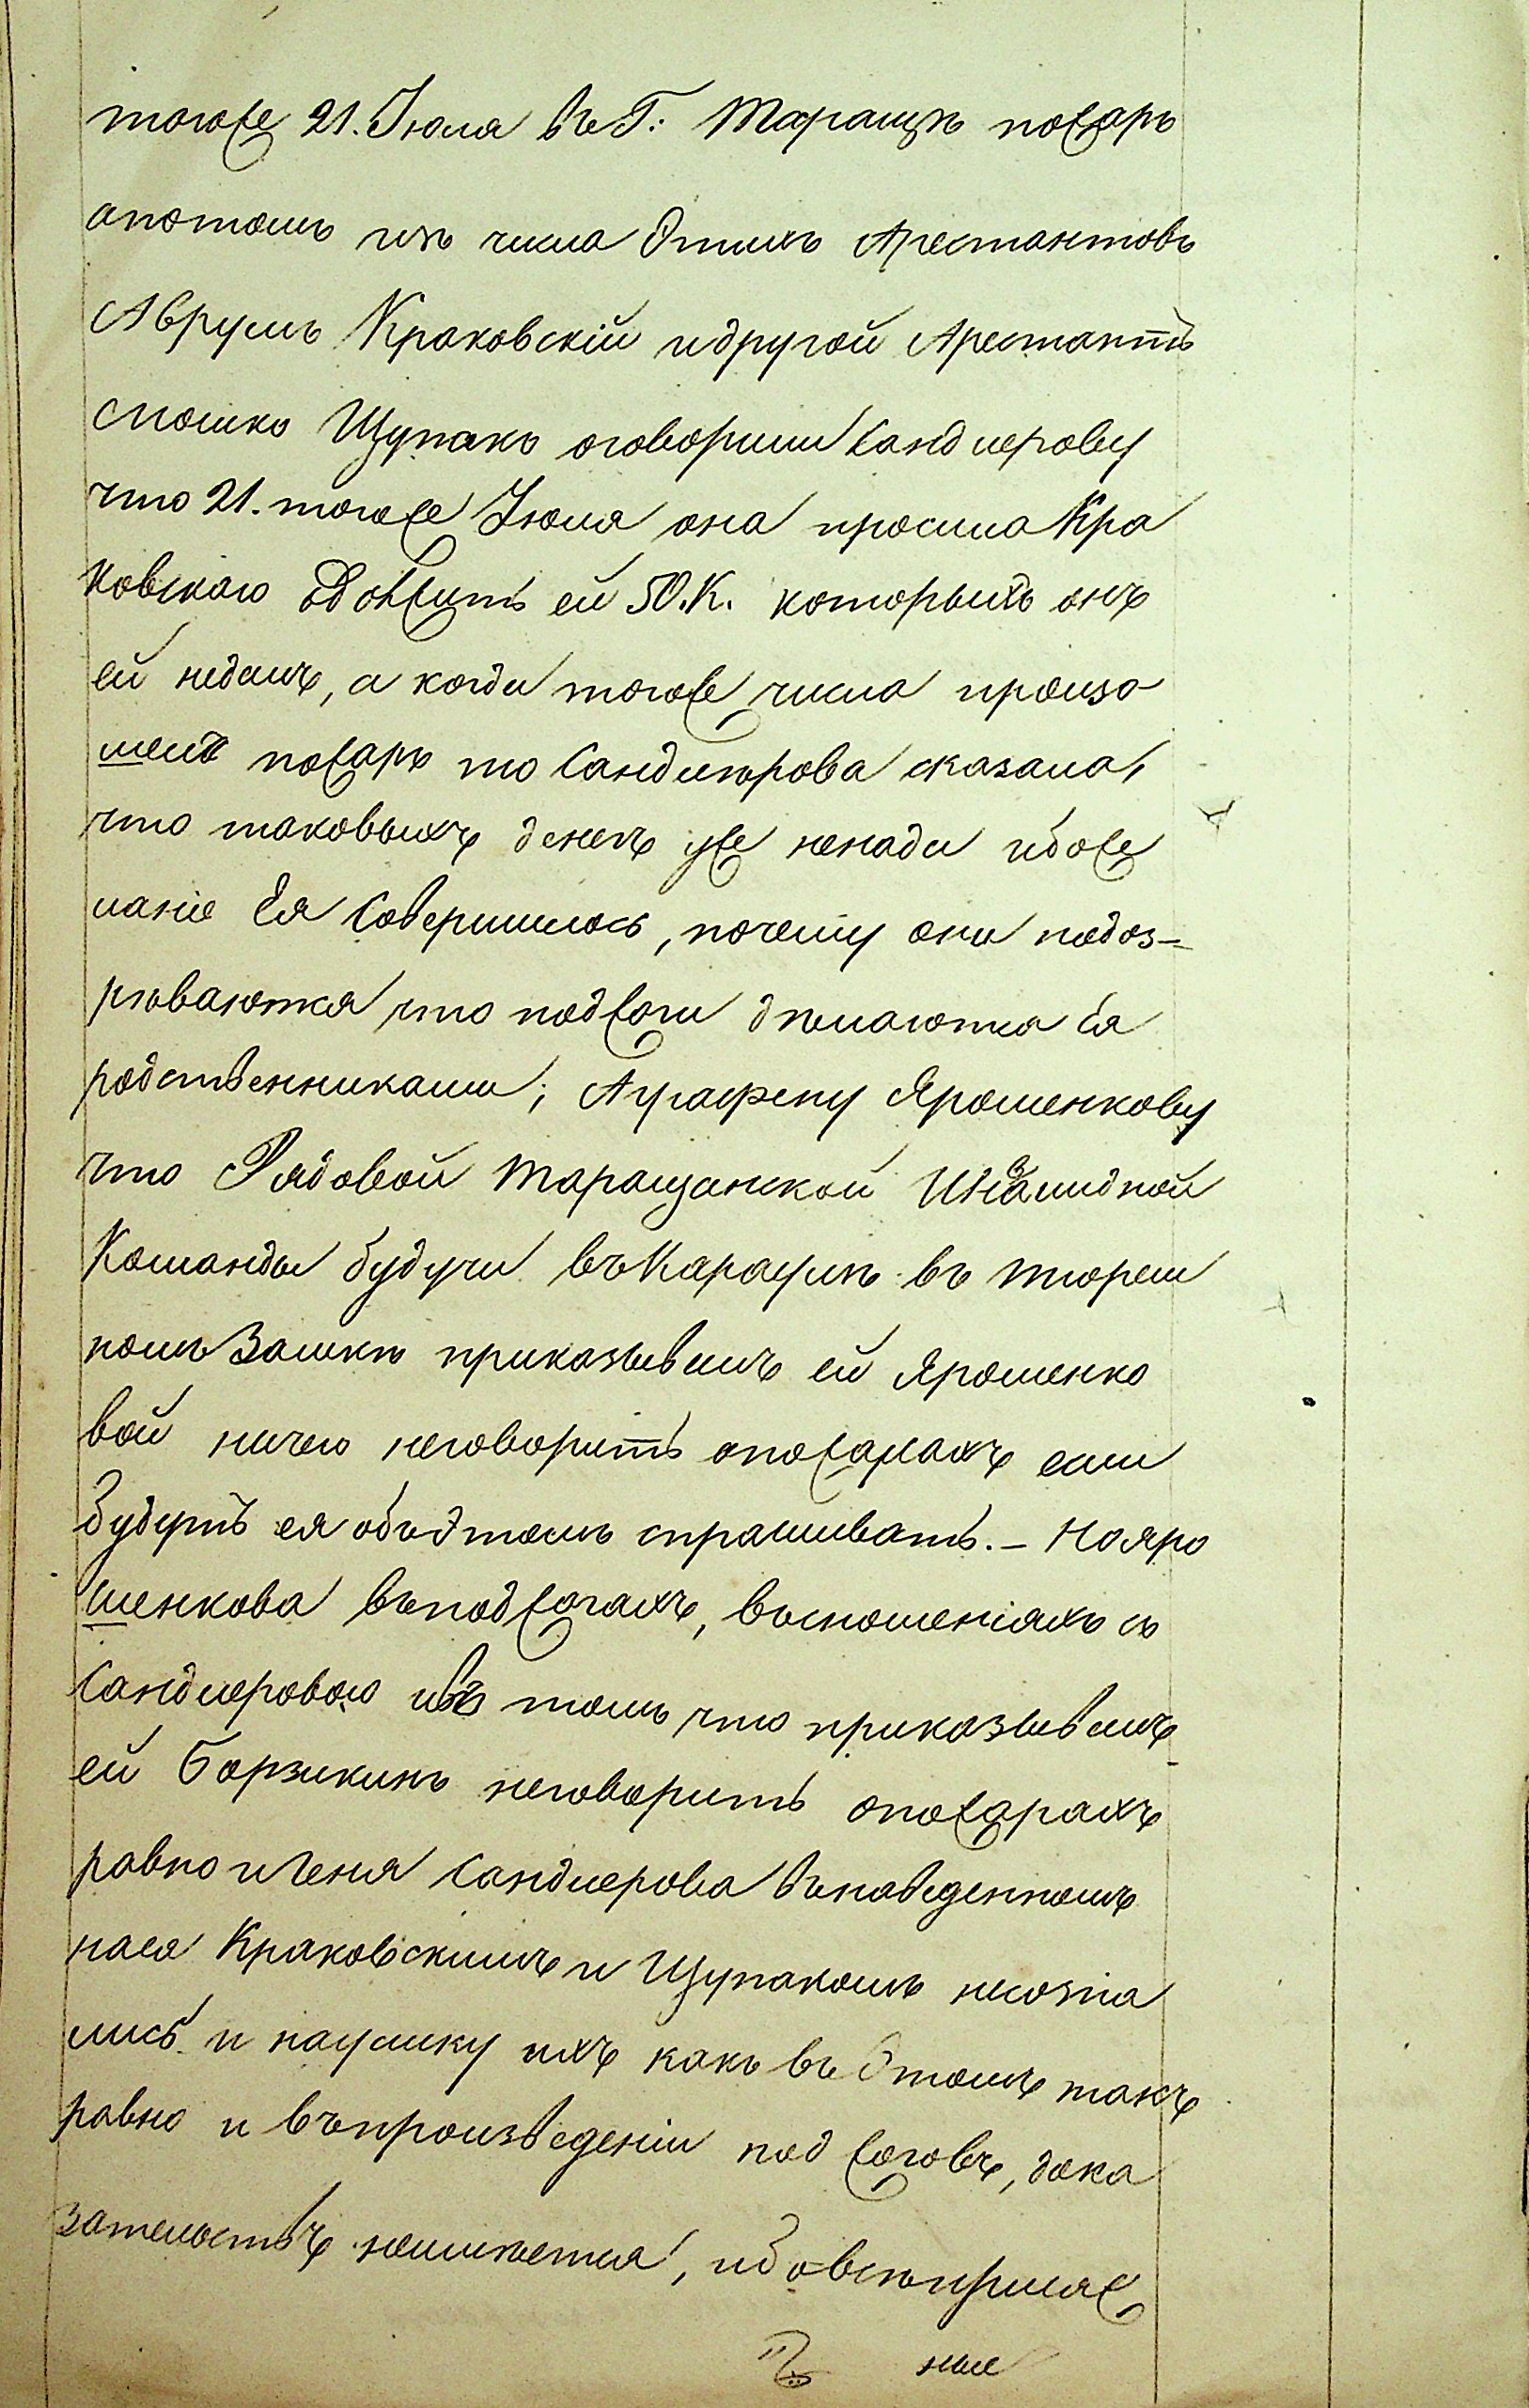 тогоже 21. Іюля въ Г: Таращѣ пожаръ
апотомъ изъ числа Этихъ Арестантовъ
Аврумъ Краковскій идругой Арестантъ
Мошко Щупакъ оговорили Сандлерову
что 21. тогоже Іюля она просила Кра
ковскаго Одолжить ей 50. К. которыхъ онъ
ей недалъ, а когда тогоже числа произо
шелъ пожаръ то Сандлерова сказала,
что таковыхъ денегъ уже ненада ибоже
ланіе Ея Совершилось, почему они подоз-
рѣваются что поджоги дѣлаются Ея
родственниками; Аграфену Ярошенкову
что Рядовой Таращанской Инвалидной
Команды будучи въ Караулѣ въ тюрем
номъ Замкѣ приказывалъ ей Ярошенко
вой ничего неговорить опожарахъ если
Будутъ ея объэтомъ спрашивать. - Нояро
шенкова въподжогахъ, въсношеніяхъ съ
Сандлеровою ивъ томъ что приказывалъ
ей Борзикинъ неговорить опожарахъ
равно иЧеня Сандлерова вънаведенномъ
нася Краковскимъ и Щупакомъ несозна
лись и наулику ихъ какъ въ Этомъ такъ
равно и въпроизведеніи поджоговъ, дока
зательствъ неимѣется, ибовсѣприсяж
ные